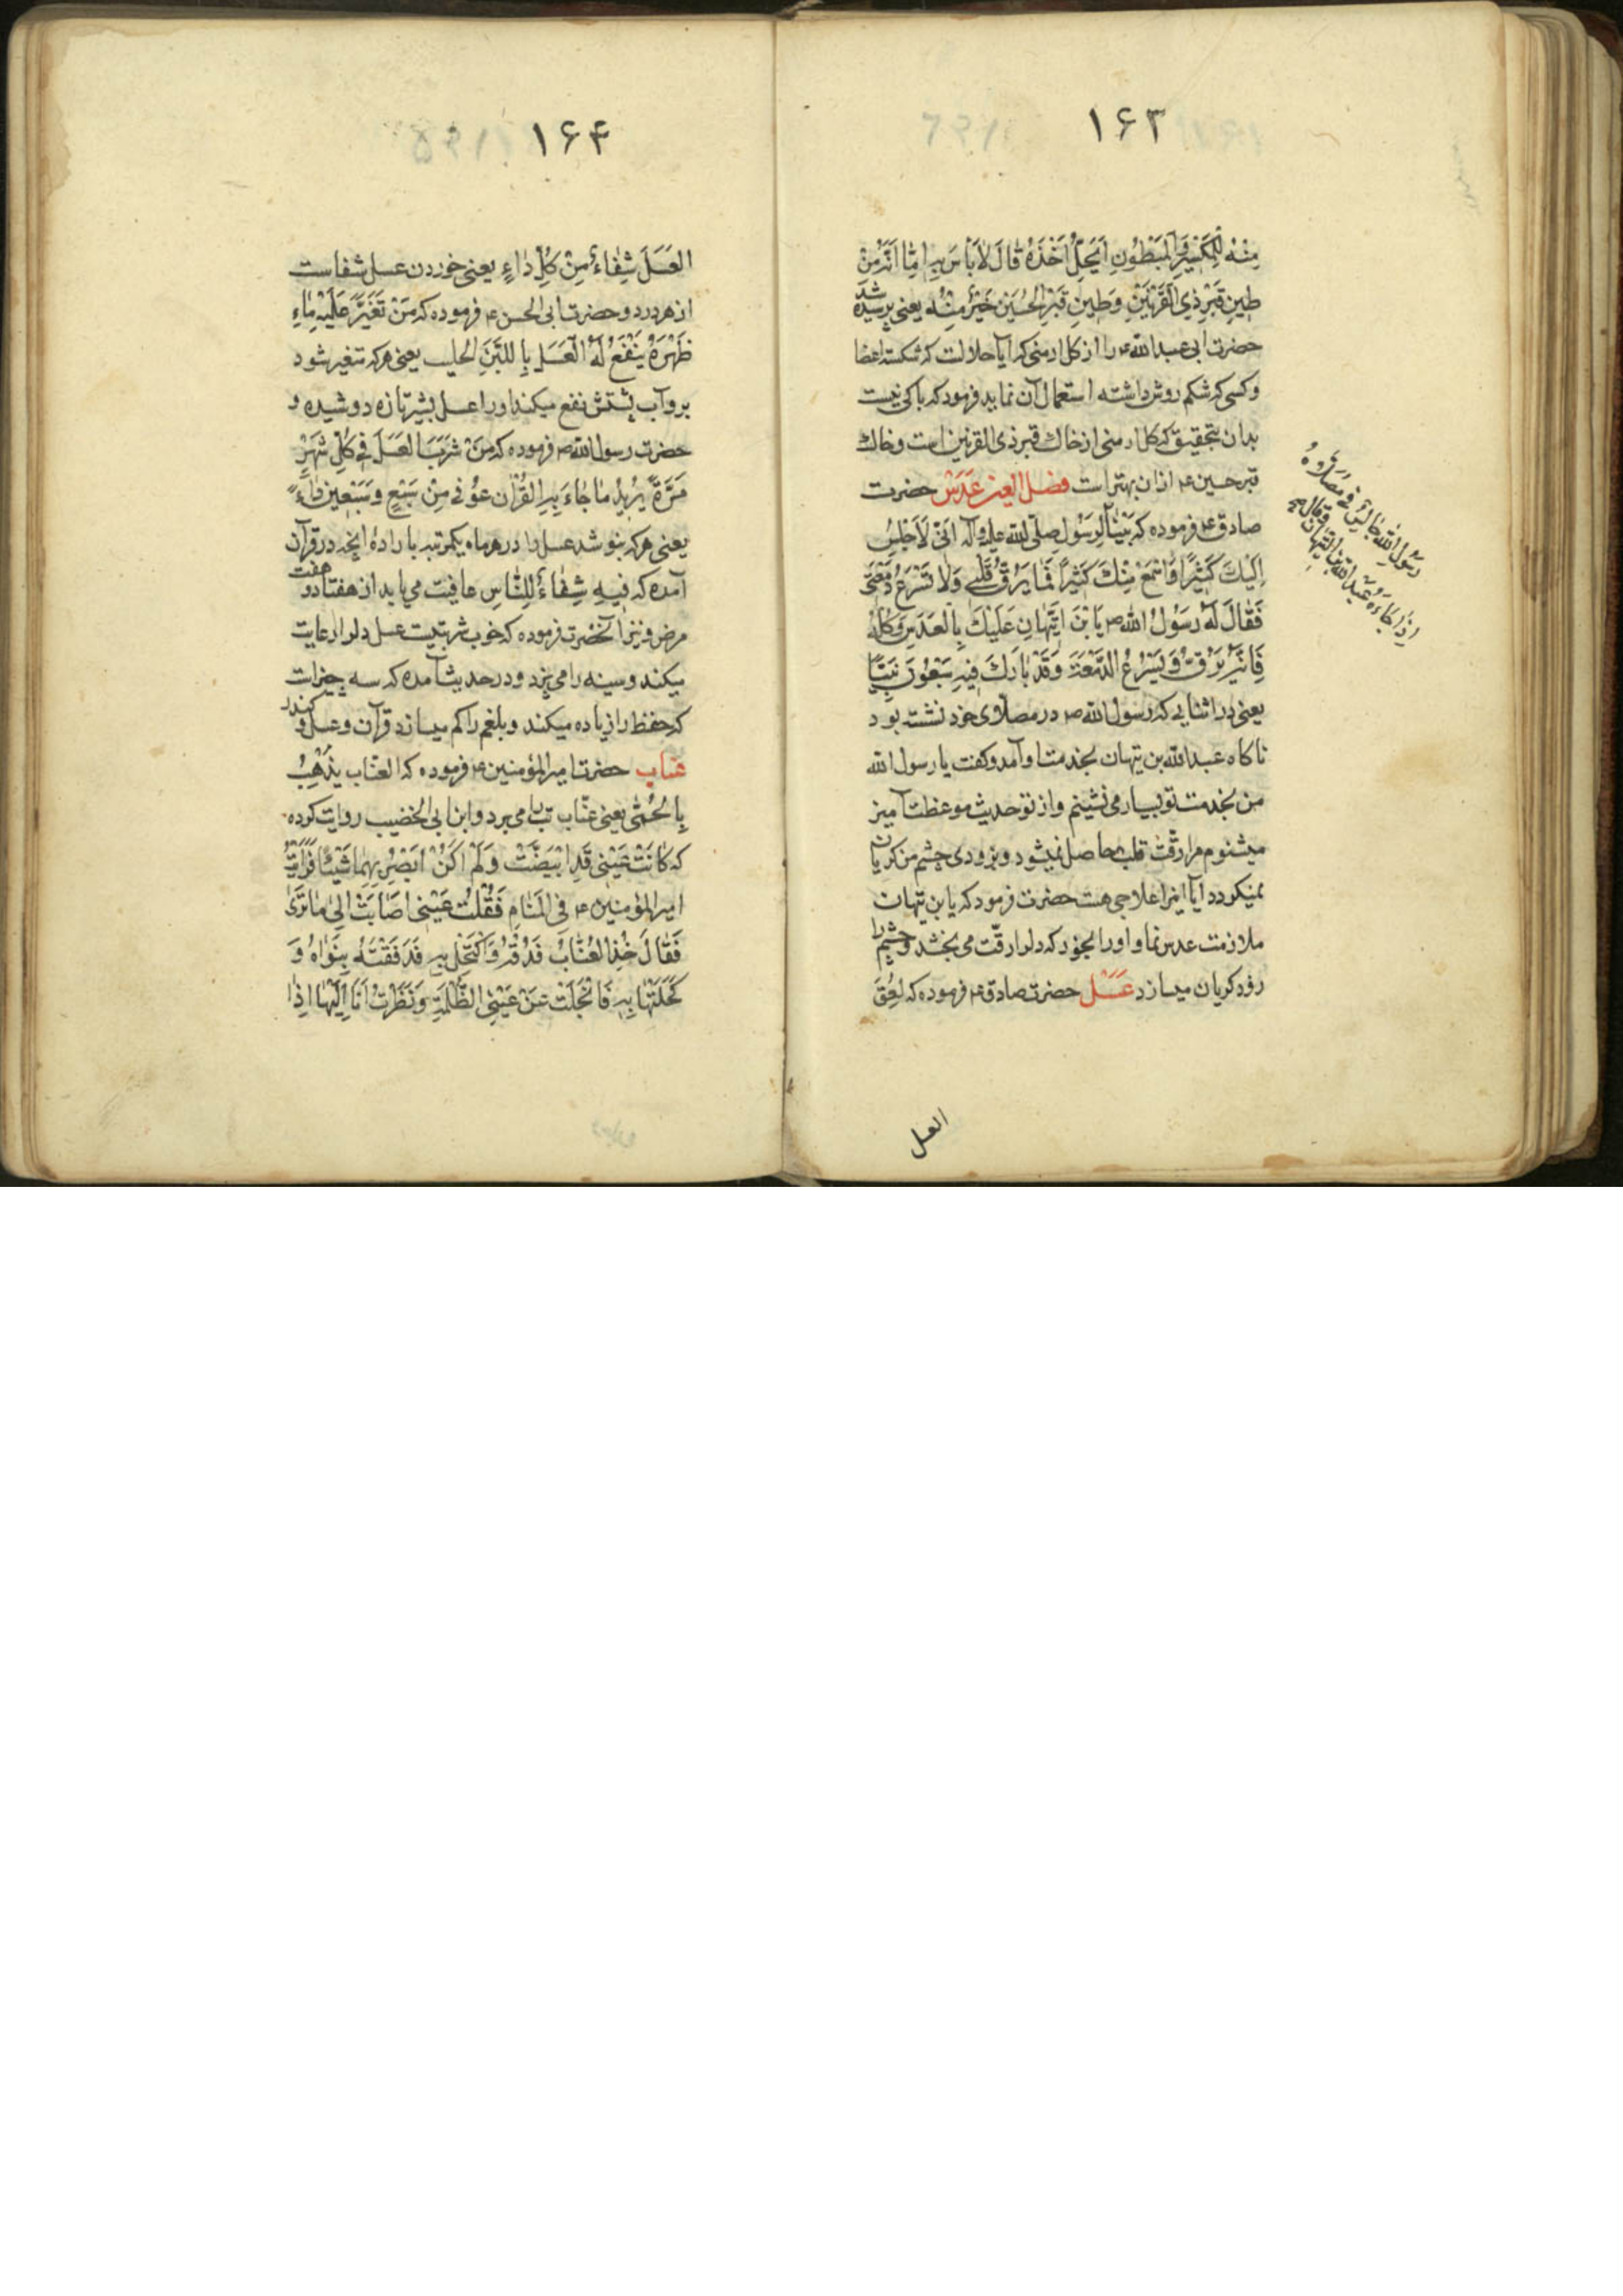 ۱۶۳
مِنْهُ لِلْكَسْيرِ وَالْمَبْطُونِ اَيَحِلُّ اَخْذُهُ قٰالَ لاٰبَاْسَ بِهِ اَمّٰا اِنَّهُ مِنْ
طينِ قَبْرِ ذِي الْقَرْنَيْنِ وَطينِ قَبْرِ الْحُسَيْنِ خَيْرٌ مِنْهُ يعنى پرسيده شد
حضرت ابى عبدالله ع را از كل ارمنى كه آيا حلالست كه شكسته اعضا
و كسى كه شكم روش داشته استعمال آن نمايد فرمود كه باكى نيست
بدان بتحقيق كه كل ارمنى از خاك قبر ذى القرنين است و خاك
قبر حسين ع ازان بهتر است فصل العين عَدَسْ حضرت
صادق ع فرموده كه بَيْنٰا لِرَسُولِ صلّى الله عليه وآله اِنّي لَاَجْلِسُ
اِلَيْكَ كَثيرًا وَاَسْمَعُ مِنْكَ كَثيرًا فَمٰا يَرُقُّ قَلْبي وَلاٰ تَسْرَعُ دَمْعَتى
فَقٰالَ لَهُ رَسُولُ الله ص يَابْنَ التَّيِّهٰانِ عَلَيْكَ بِالْعَدَسِ وَكُلْهُ
فَاِنَّهُ يَرُقُّ وَيَسْرَعُ الدَّمْعَةَ وَقَدْ بٰارَكَ فيهِ سَبْعُونَ نَبِيًّا
يعنى در اثنايى كه رسول الله ص در مصلاّى خود نشسته بود
ناكاه عبدالله بن تيهان بخدمت او آمد و كفت يا رسول الله
من بخدمت تو بسيار مى نشينم و از تو حديث موعظت آميز
ميشنوم مرا رقّت قلب حاصل نميشود و بزودى چشم من كريان
نميكردد آيا اينرا علاجى هست حضرت فرمود كه يا بن تيهان
ملازمت عدس نما و اورا بخور كه دلرا رقّت مى بخشد و چشم را
زود كريان ميسازد عَسَل حضرت صادق ع فرموده كه لَعِقَ
رَسُولُ اللهِ جٰالِسٌ فى مُصَلاّٰهُ
اِذْ جٰاءَهُ عَبْدُ اللهِ بْنُ التَّيِّهٰانِ فَقٰالَ
العسل
۱۶۴
العَسَلَ شِفٰاءٌ مِنْ كُلِّ دٰاءٍ يعنى خوردن عسل شفاست
از هر درد و حضرت ابى الحسن ع فرموده كه مَنْ تَغَيَّرَ عَلَيْهِ مٰاءُ
ظَهْرِهِ يَنْفَعُ لَهُ الْعَسَلُ بِاللَّبَنِ الحليب يعنى هركه متغير شود
برو آب پشتش نفع ميكند اورا عسل بشير تازه دوشيده و
حضرت رسول الله ص فرموده كه مَنْ شَرِبَ الْعَسَلَ فى كُلِّ شَهْرٍ
مَرَّةً يُريدُ مٰا جٰاءَ بِهِ الْقُرْاٰن عُوفِىَ مِنْ سَبْعٍ وَسَبْعينَ دٰاءً
يعنى هركه بنوشد عسل را در هر ماه يكمرتبه با رادهٔ آنچه در قرآن
آمده كه فيهِ شِفٰاءٌ لِلنّٰاسِ عافيت مى يابد از هفتاد و هفت
مرض و نيز آنحضرت فرموده كه خوب شربتيست عسل دلرا رعايت
ميكند و سينه را مى پزد و در حديث آمده كه سه چيز است
كه حفظ را زياده ميكند و بلغم را كم ميسازد قرآن و عسل و كندر
عنّاب حضرت امير المؤمنين ع فرموده كه العنّاب يَذْهَبُ
بِالْحُمّٰى يعنى عنّاب تب را مى برد و ابن ابى الخضيب روايت كرده
كه كٰانَتْ عَيْنى قَدِ ابْيَضَّتْ وَلَمْ اَكُنْ اُبْصِرُ بِهٰا شَيْئًا فَرَاَيْتُ
امير المؤمنين ع فِى الْمَنٰامِ فَقُلْتُ عَيْنى اَصٰابَتْ اِلىٰ مٰا تَرىٰ
فَقٰالَ خُذِ الْعُنّٰابَ فَدُقَّهُ وَاكْتَحِلْ بِهِ فَدَقَقْتُهُ بِنَوٰاهُ وَ
كَحَّلْتُهٰا بِهِ فَانْجَلَتْ عَنْ عَيْنِى الظُّلْمَةُ وَنَظَرْتُ اَنَا اِلَيْهٰا اِذٰا